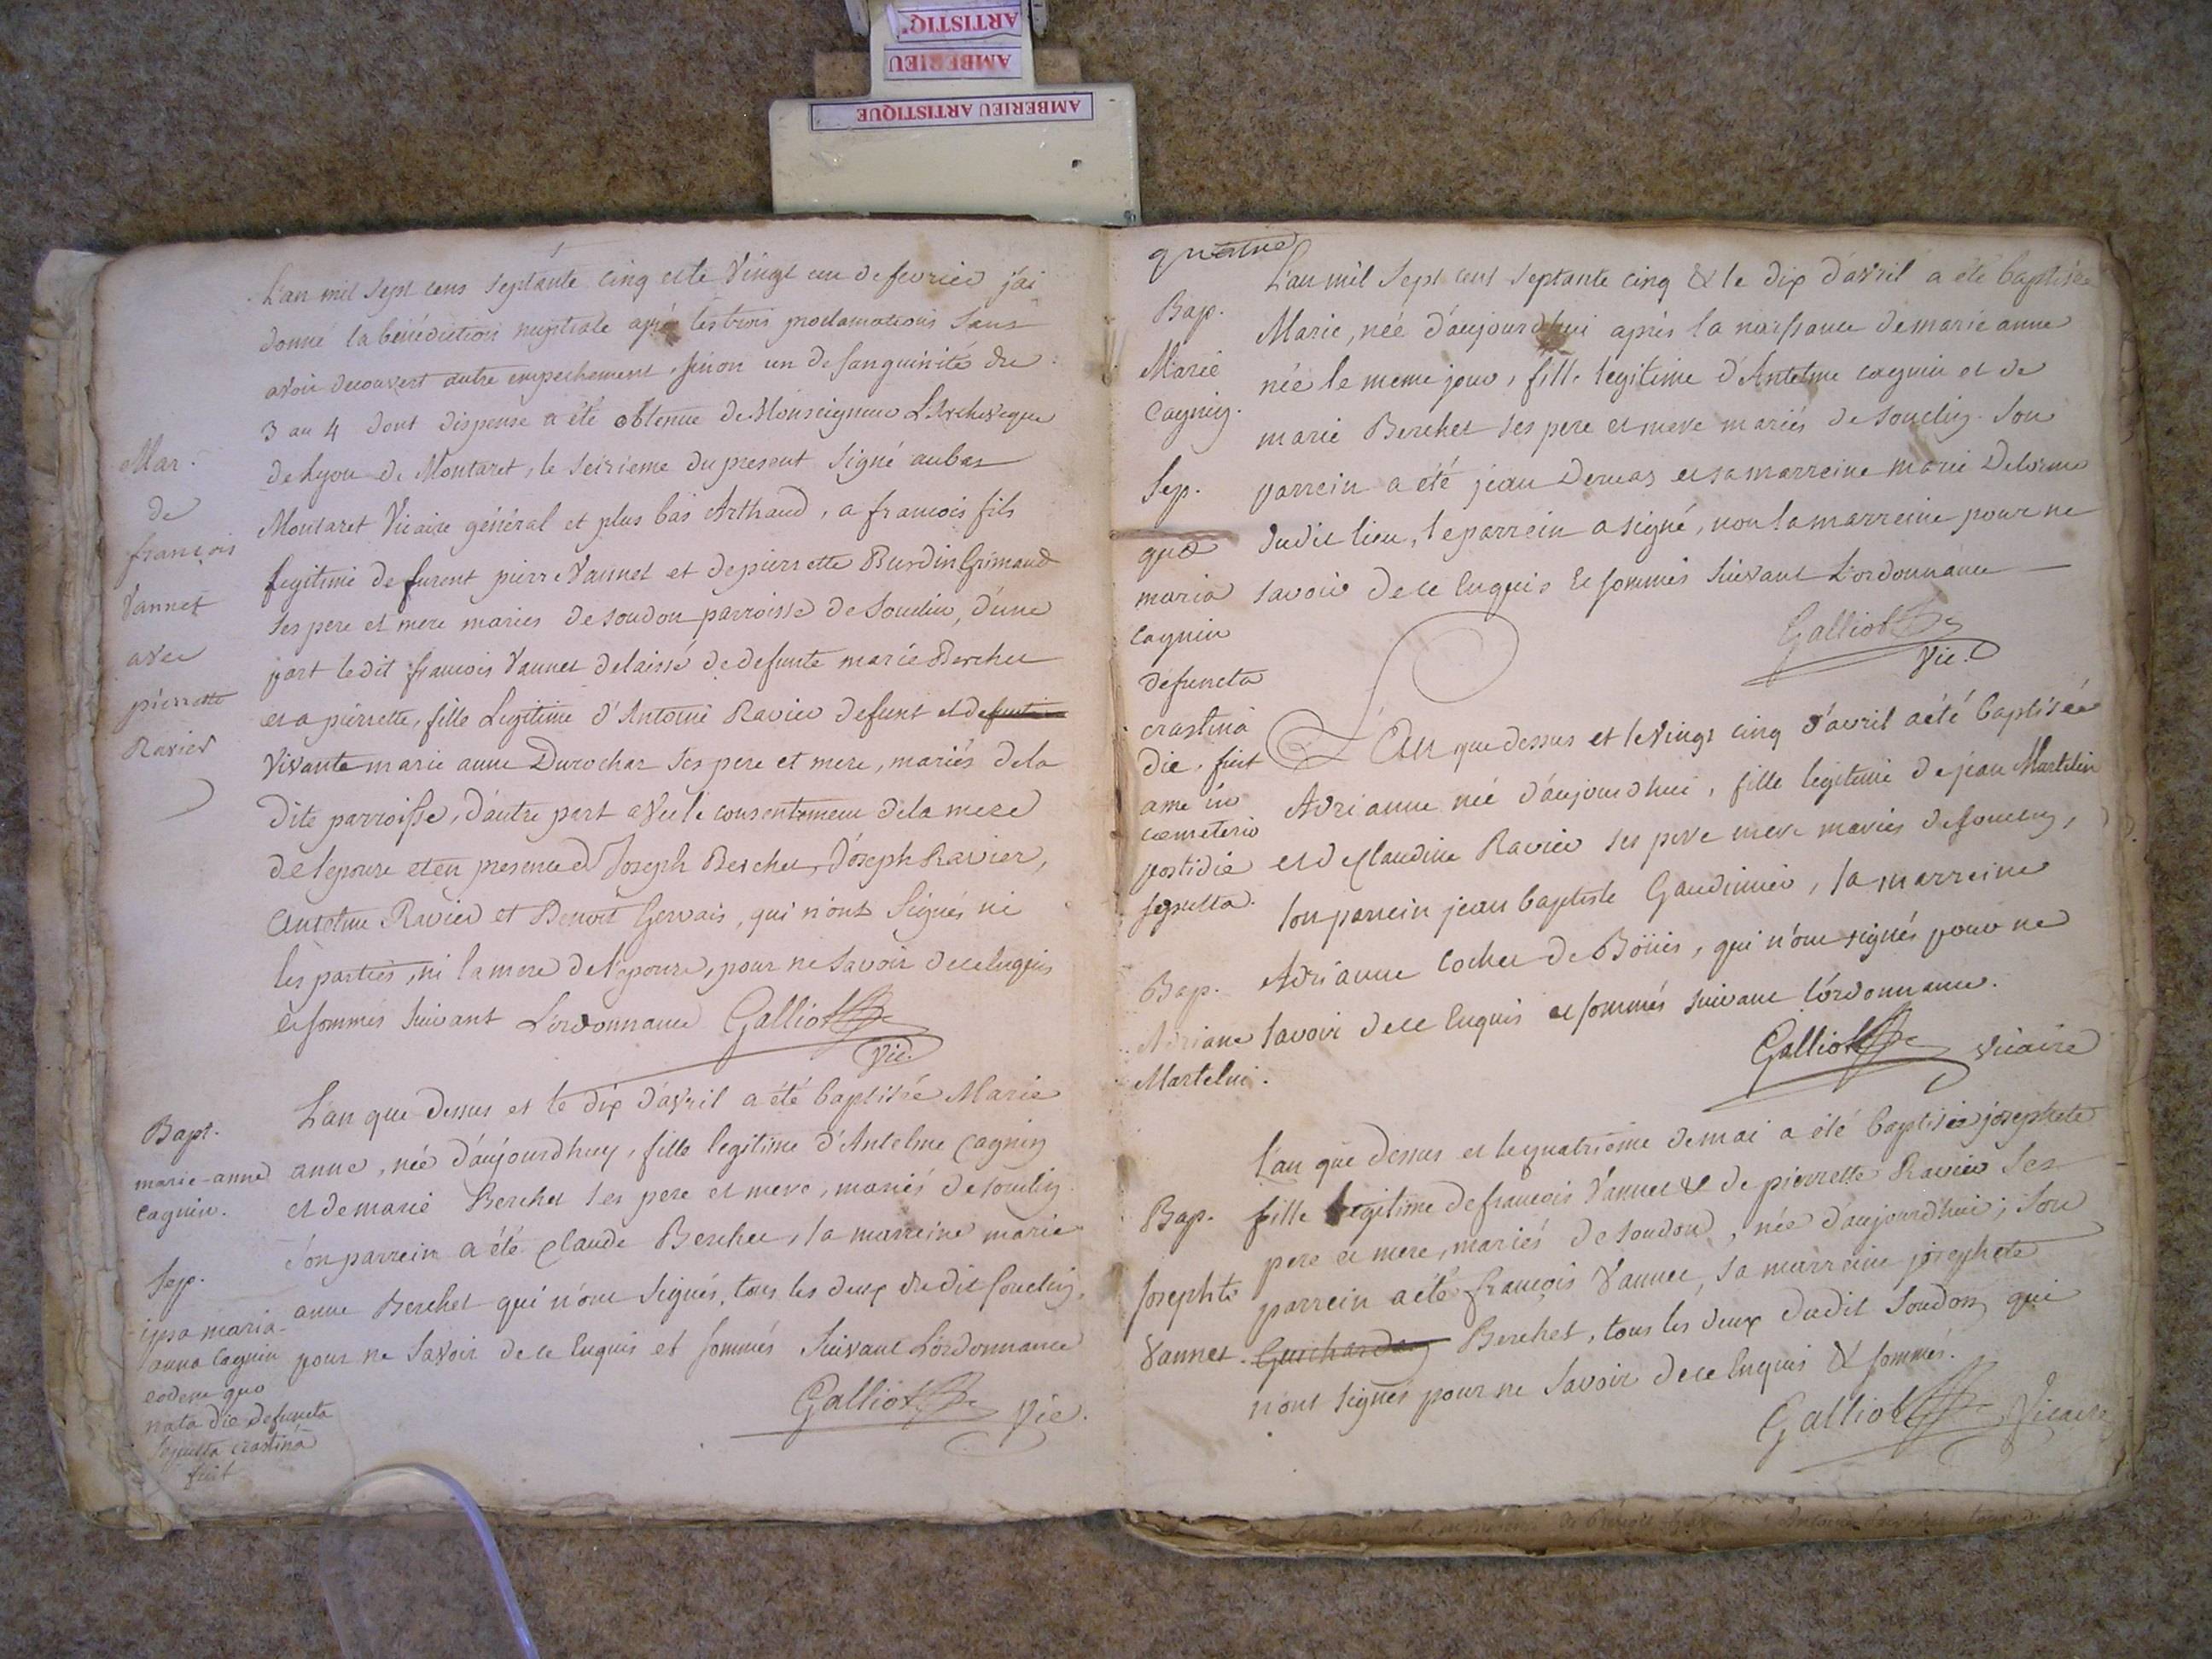 ARTISTIQ
AMBERIEU
AMBERIEU ARTISTIQUE
L'an mil sept cens septante cinq et le vingt un de fevrier j'ai
donné la bénédiction nuptiale après les trois proclamations sans
avoir decouvert autre empechement, sinon un de sanguinité du
3 au 4 dont dispense a été obtenue de Monseigneur L'Archeveque
de Lyon de Montaret, le seizieme du present signé au bas
Montaret Vicaire général et plus bas Arthaud, a francois fils
legitime de furent pierre Vannet et de pierrette Burdin Grimaud
ses pere et mere maries de soudon parroisse de Souclin, d'une
part ledit francois Vannet delaissé de defunte marie Berchet
et a pierrette, fille Legitime d'Antoine Ravier defunt et defunte
Vivante marie anne Durochar ses pere et mere, mariés de la
dite parroisse, d'autre part avec le consentement de la mere
de l'epouse et en presence de Joseph Berchet, Joseph Ravier,
Antelme Ravier et Benoit Gervais, qui n'ont signés ni
les parties, ni la mere de l'epouse, pour ne savoir de ce enquis
et sommés suivant L'ordonnance Galliot
Vic.
Mar.
de
françois
Vannet
avec
pierrette
Ravier
L'an que dessus et le dix d'avril a été baptisée Marie
anne, née d'aujourdhuy, fille legitime d'Antelme Cagnin
et de marie Berchet ses pere et mere, mariés de souclin.
son parrein a été claude Berchet, la marreine marie
anne Berchet qui n'ont signés, tous les deux du dit souclin,
pour ne savoir de ce Enquis et sommés suivant L'ordonnance
Galliot Vic.
Bapt.
marie-anne
Cagnin.
Sep.
ipsa maria-
anna Cagnin
eodem quo
nata die defuncta
sepulta crastinâ
fuit
quatre
L'an mil sept cent septante cinq & le dix d'avril a été baptisée
Marie, née d'aujourdhui après la naissance de marie anne
née le meme jour, fille legitime d'Antelme cagnin et de
marie Berchet ses pere et mere mariés de souclin. son
parrein a été jean Dervas et sa marreine marie Delorme
dudit lieu, le parrein a signé, non la marreine pour ne
savoir de ce Enquis et sommés suivant L'ordonnance
Galliot
Vic.
Bap.
Marie
Cagnin.
Sep.
quæ
maria
Cagnin
defuncta
crastinâ
die, fuit
a me in
cœmeterio
postidie
sepulta.
L'an que dessus et le vingt cinq d'avril a été baptisée
Adrianne née d'aujourdhui, fille legitime de jean Martelin
et de Claudine Ravier ses pere mere mariés de souclin,
son parrein jean baptiste Gaudinier, la marreine
Adrianne Cochet de Boüis, qui n'ont signés pour ne
savoir de ce Enquis et sommés suivant l'ordonnance.
Galliot vicaire
Bap.
Adriane
Martelin.
L'an que dessus et le quatrieme de mai a été baptisée josephete
fille legitime de francois Vannet & de pierrette Ravier ses
pere et mere, mariés de soudon, née d'aujourdhui; son
parrein a été françois Vannet, sa marreine josephete
Berchet, tous les deux dudit soudon, qui
n'ont signés pour ne savoir de ce Enquis & sommés.
Galliot Vicaire
Bap.
Josephte
Vannet.